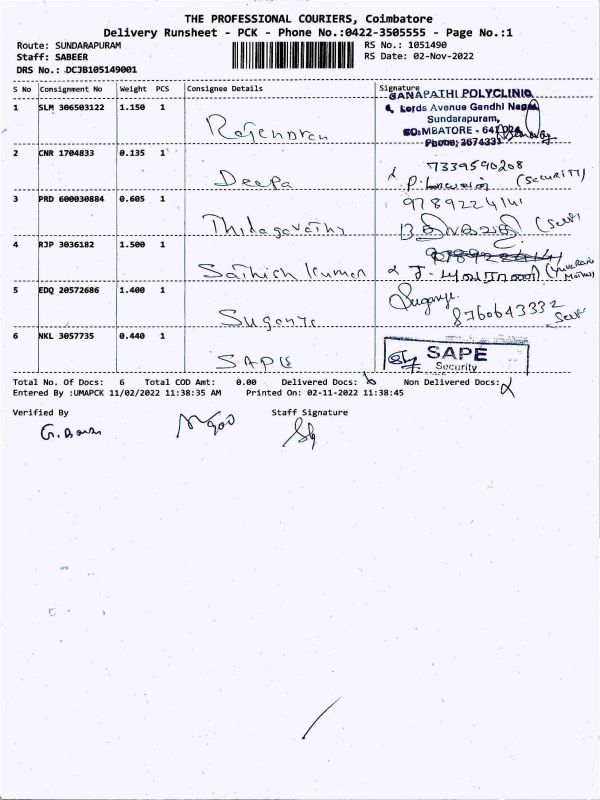 THE PROFESSIONAL COURIERS, Coimbatore
Delivery Runsheet - PCK - Phone No.:0422-3505555 - Page No.:1
Route: SUNDARAPURAM
RS No.: 1051490
Staff: SABEER
RS Date: 02-Nov-2022
DRS No.: DCJB105149001
S No Consignment No Weight PCS Consignee Details Signature
GANAPATHI POLYCLINIC
4, Lords Avenue Gandhi Nagar
Sundarapuram,
COIMBATORE - 641024
Phone: 3674333
1 SLM 306503122 1.150 1 Rajendran
2 CNR 1704833 0.135 1 Deepa
7339590208
(SECURITY)
3 PRD 600030884 0.605 1 Thilagavathy
9789224141
4 RJP 3036182 1.500 1 Sathish Kumar
5 EDQ 20572686 1.400 1
8760643332
6 NKL 3057735 0.440 1 SAPE
SAPE
Security
Total No. Of Docs: 6 Total COD Amt: 0.00 Delivered Docs: 6 Non Delivered Docs:
Entered By :UMAPCK 11/02/2022 11:38:35 AM Printed On: 02-11-2022 11:38:45
Verified By Staff Signature